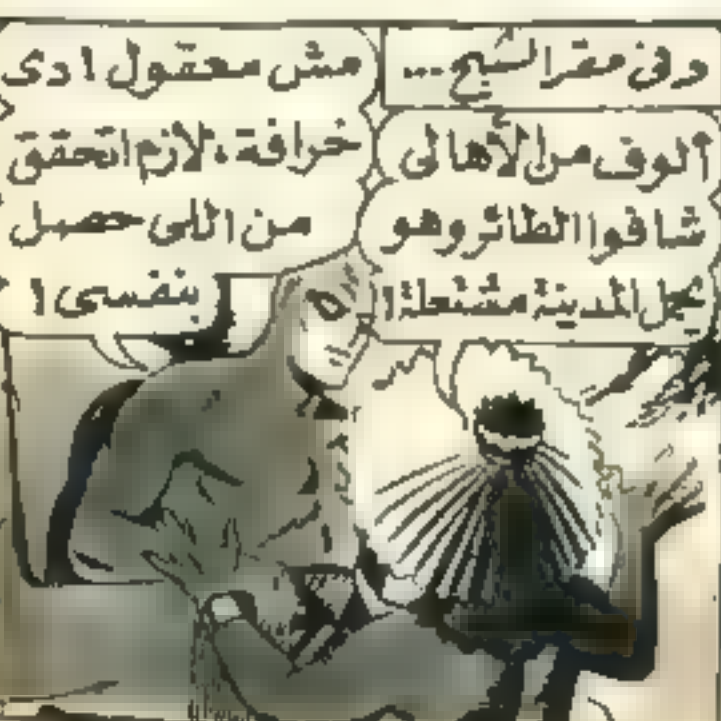 وفى مقر الشبح...
ألوف من الأهالى
شافوا الطائر وهو
يجعل المدينة مشتعلة!
مش معقول! دى
خرافة، لازم اتحقق
من اللى حصل
بنفسى!